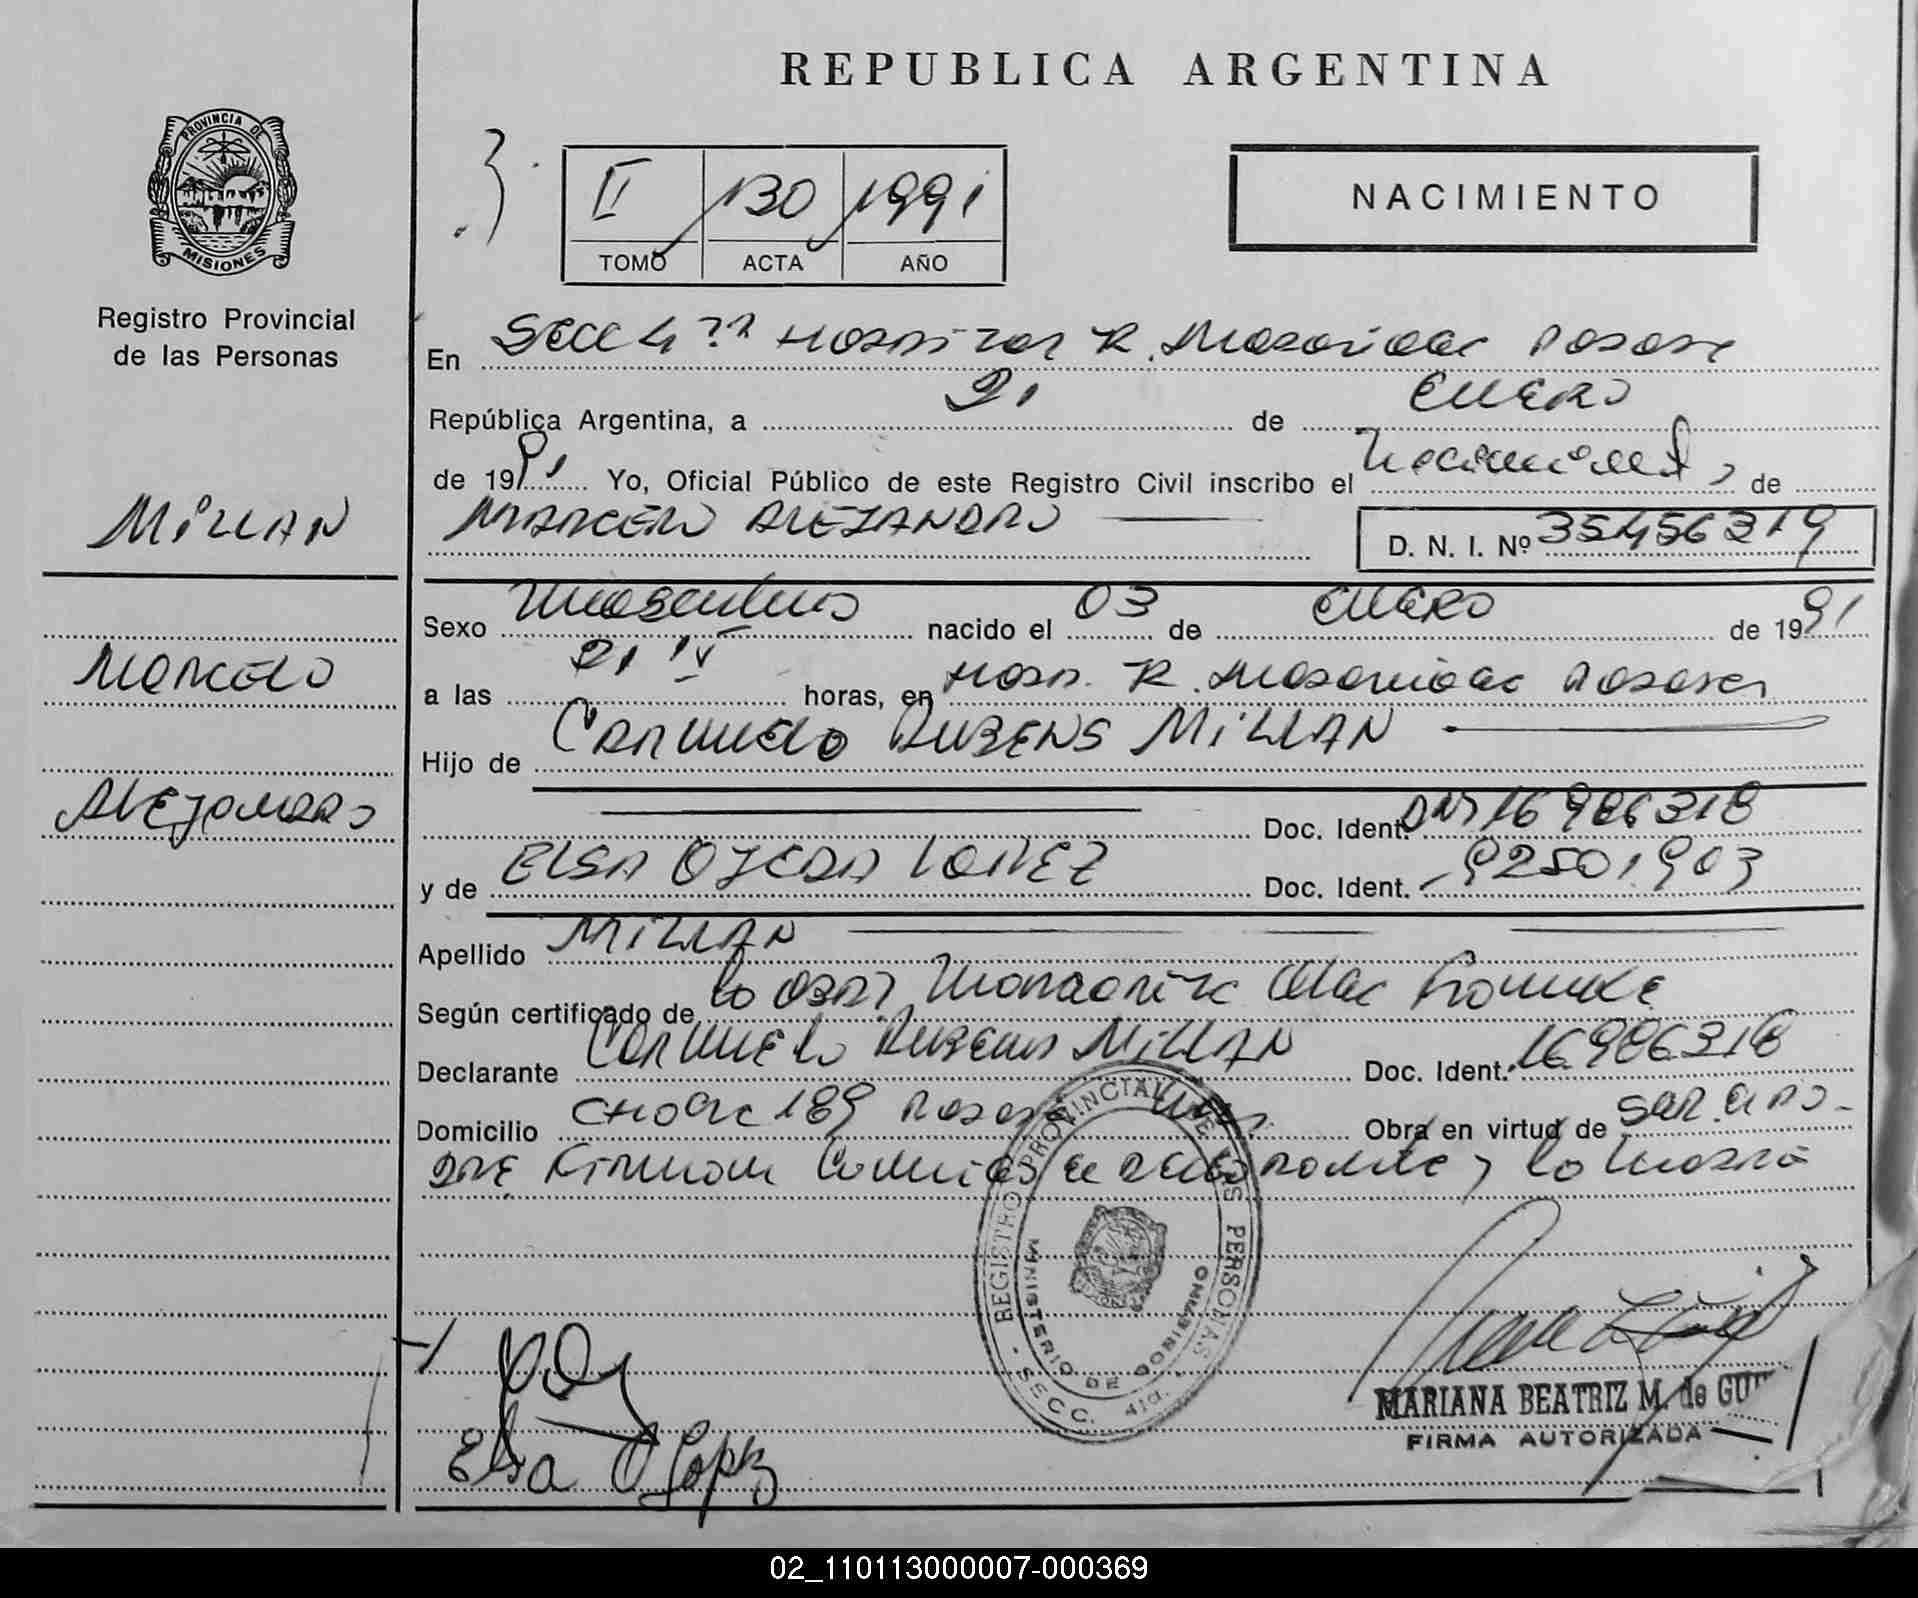 REPUBLICA ARGENTINA
PROVINCIA DE
MISIONES
Registro Provincial
de las Personas
II 130 1991
TOMO ACTA AÑO
NACIMIENTO
En Secc 4ta Hospital R. Madariaga Posadas
República Argentina, a 21 de ENERO
de 1991 Yo, Oficial Público de este Registro Civil inscribo el Nacimiento de
MILLAN
MARCELO ALEJANDRO D. N. I. Nº 35456319
Sexo Masculino nacido el 03 de ENERO de 1991
MARCELO
a las 21 15 horas, en Hosp. R. Madariaga Posadas
Hijo de CARMELO RUBENS MILLAN
ALEJANDRO
Doc. Ident. DNI 16986318
y de ELSA OJEDA LOPEZ Doc. Ident. 92501903
Apellido MILLAN
Según certificado de la Obst
Declarante CARMELO RUBENS MILLAN Doc. Ident. 16986318
Domicilio 189 Posadas Obra en virtud de
Firman el y la Madre
REGISTRO PROVINCIAL DE LAS PERSONAS
MINISTERIO DE GOBIERNO
SECC. 4ta.
Elsa O Lopez
MARIANA BEATRIZ M. de
FIRMA AUTORIZADA
02_110113000007-000369